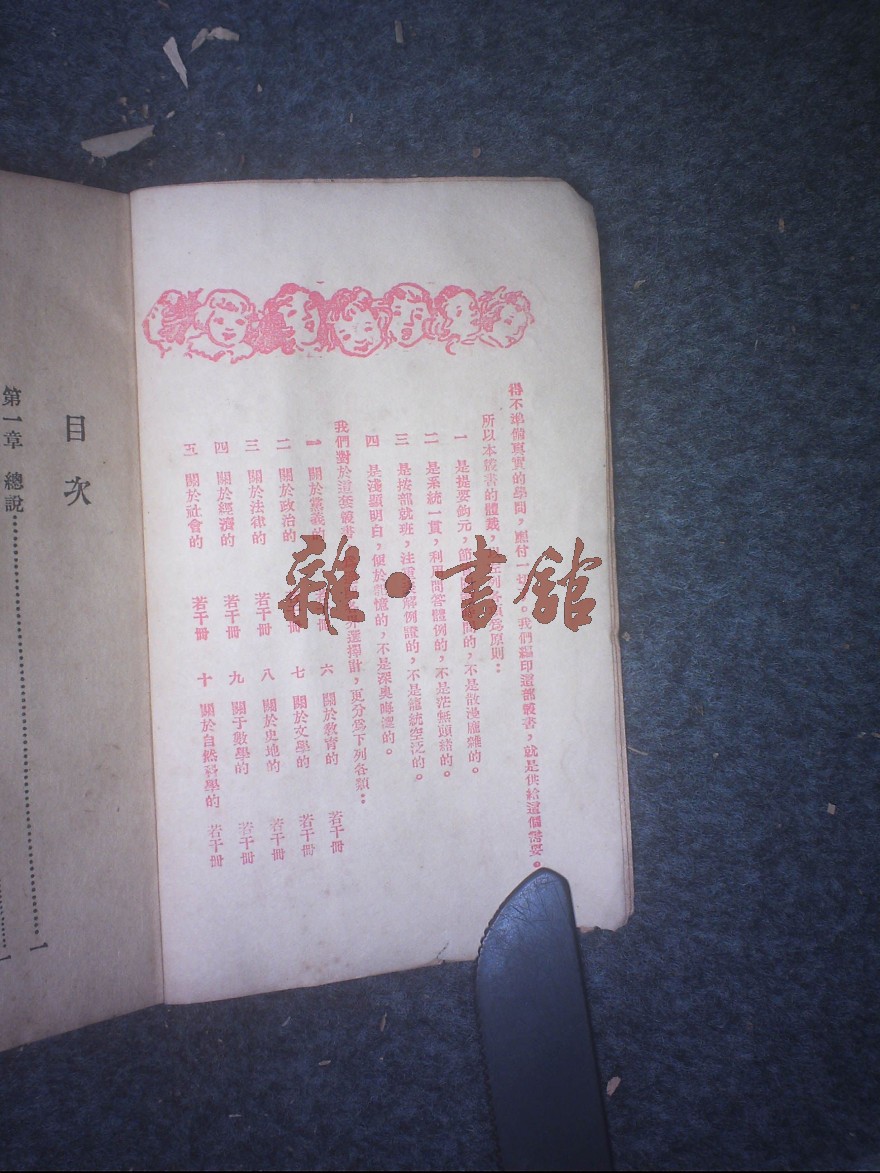 得不準備真實的學問，應付一切。我們編印這部叢書，就是供給這個需要。
所以本叢書的體裁，列各項為原則：
一　是提要鈎元，節的，不是散漫龐雜的。
二　是系統一貫，利用問答體例的，不是茫無頭緒的。
三　是按部就班，注重解例證的，不是籠統空泛的。
四　是淺顯明白，便於記憶的，不是深奧晦澀的。
我們對於這套叢書選擇計，更分為下列各類：
一　關於黨義的　若干冊
二　關於政治的　若干冊
三　關於法律的　若干冊
四　關於經濟的　若干冊
五　關於社會的　若干冊
六　關於教育的　若干冊
七　關於文學的　若干冊
八　關於史地的　若干冊
九　關于數學的　若干冊
十　關於自然科學的　若干冊
目次
第一章　總說……一
一
雜·書館